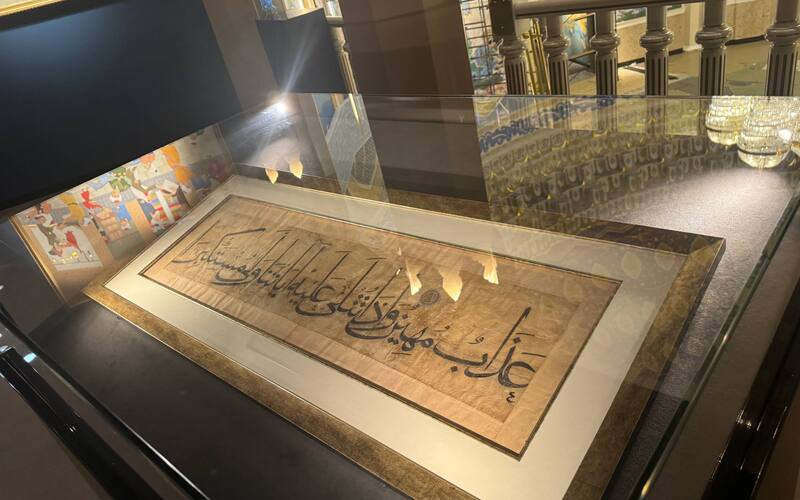 عَذَابٌ مُهِينٌ وَاِذَا تُتْلَى عَلَيْهِ آيَاتُنَا وَلَّى مُسْتَكْبِرًا